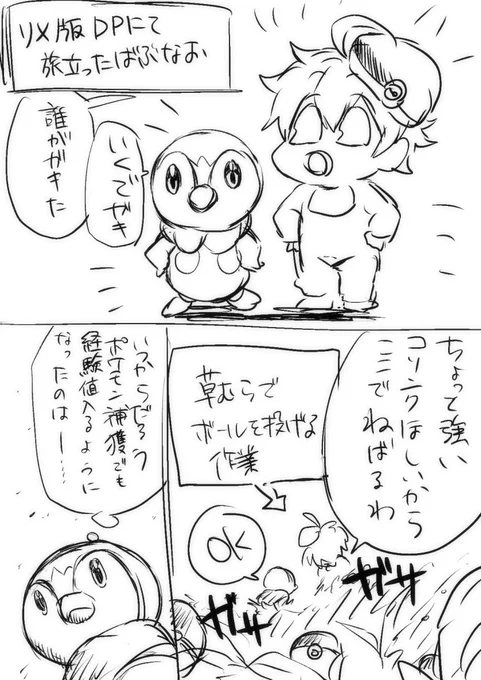 リメ版DPにて
旅立ったばぶなお
いくでガキ
誰がガキだ
ちょっと強い
コリンクほしいから
ここでねばるわ
草むらで
ボールを投げる
作業
OK
ガサ
ガサ
いつからだろう
ポケモン捕獲でも
経験値入るように
なったのは……